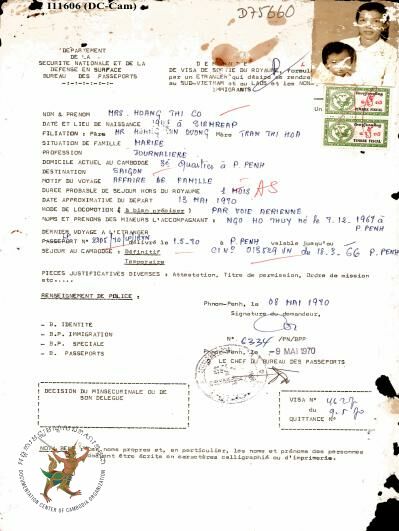 111606 (DC-Cam)
D75660
DEPARTEMENT
DE LA
SECURITE NATIONALE ET DE LA
DEFENSE EN SURFACE
BUREAU DES PASSEPORTS
DE VISA DE SORTIE DU ROYAUME,
par un ETRANGER qui désire se rendre
au SUD-VIETNAM et au LAOS et les
IMMIGRANTS
TIMBRE FISCAL
TIMBRE FISCAL
NOM & PRENOM MRS. HOANG THI CO
DATE ET LIEU DE NAISSANCE SIEMREAP
FILIATION : Père MR HOANG DUONG Mère TRAN THI HOA
SITUATION DE FAMILLE MARIEE
PROFESSION JOURNALIERE
DOMICILE ACTUEL AU CAMBODGE Quartier à P.PENH
DESTINATION SAIGON
MOTIF DU VOYAGE AFFAIRE DE FAMILLE
DUREE PROBABLE DE SEJOUR HORS DU ROYAUME 1 MOIS
DATE APPROXIMATIVE DU DEPART 13 MAI 1970
MODE DE LOCOMOTION (à bien préciser) PAR VOIE AERIENNE
NOMS ET PRENOMS DES MINEURS L'ACCOMPAGNANT : NGO HO THUY né le 7.12.1969 à
P.PENH
DERNIER VOYAGE A L'ETRANGER
PASSEPORT N° délivré le 1.5.70 à P.PENH valable jusqu'au
SEJOUR AU CAMBODGE : Définitif CI N° 013529 VN de 18.3.66 P.PENH
Temporaire
PIECES JUSTIFICATIVES DIVERSES : Attestation, Titre de permission, Ordre de mission
etc.....
RENSEIGNEMENT DE POLICE :
Phnom-Penh, le 08 MAI 1970
Signature du demandeur,
- B. IDENTITE
- B.P. IMMIGRATION
- B.P. SPECIALE
- B. PASSEPORTS
N° 6334 /PN/BPP
Phnom-Penh, le -9 MAI 1970
LE CHEF DU BUREAU DES PASSEPORTS
DECISION DU
SON DELEGUE
VISA N°
du 9.5.70
QUITTANCE N°
noms propres et, en particulier, les noms et prénoms des personnes
être écrits en caractères calligraphié ou d'imprimerie.
DOCUMENTATION CENTER OF CAMBODIA ORGANIZATION